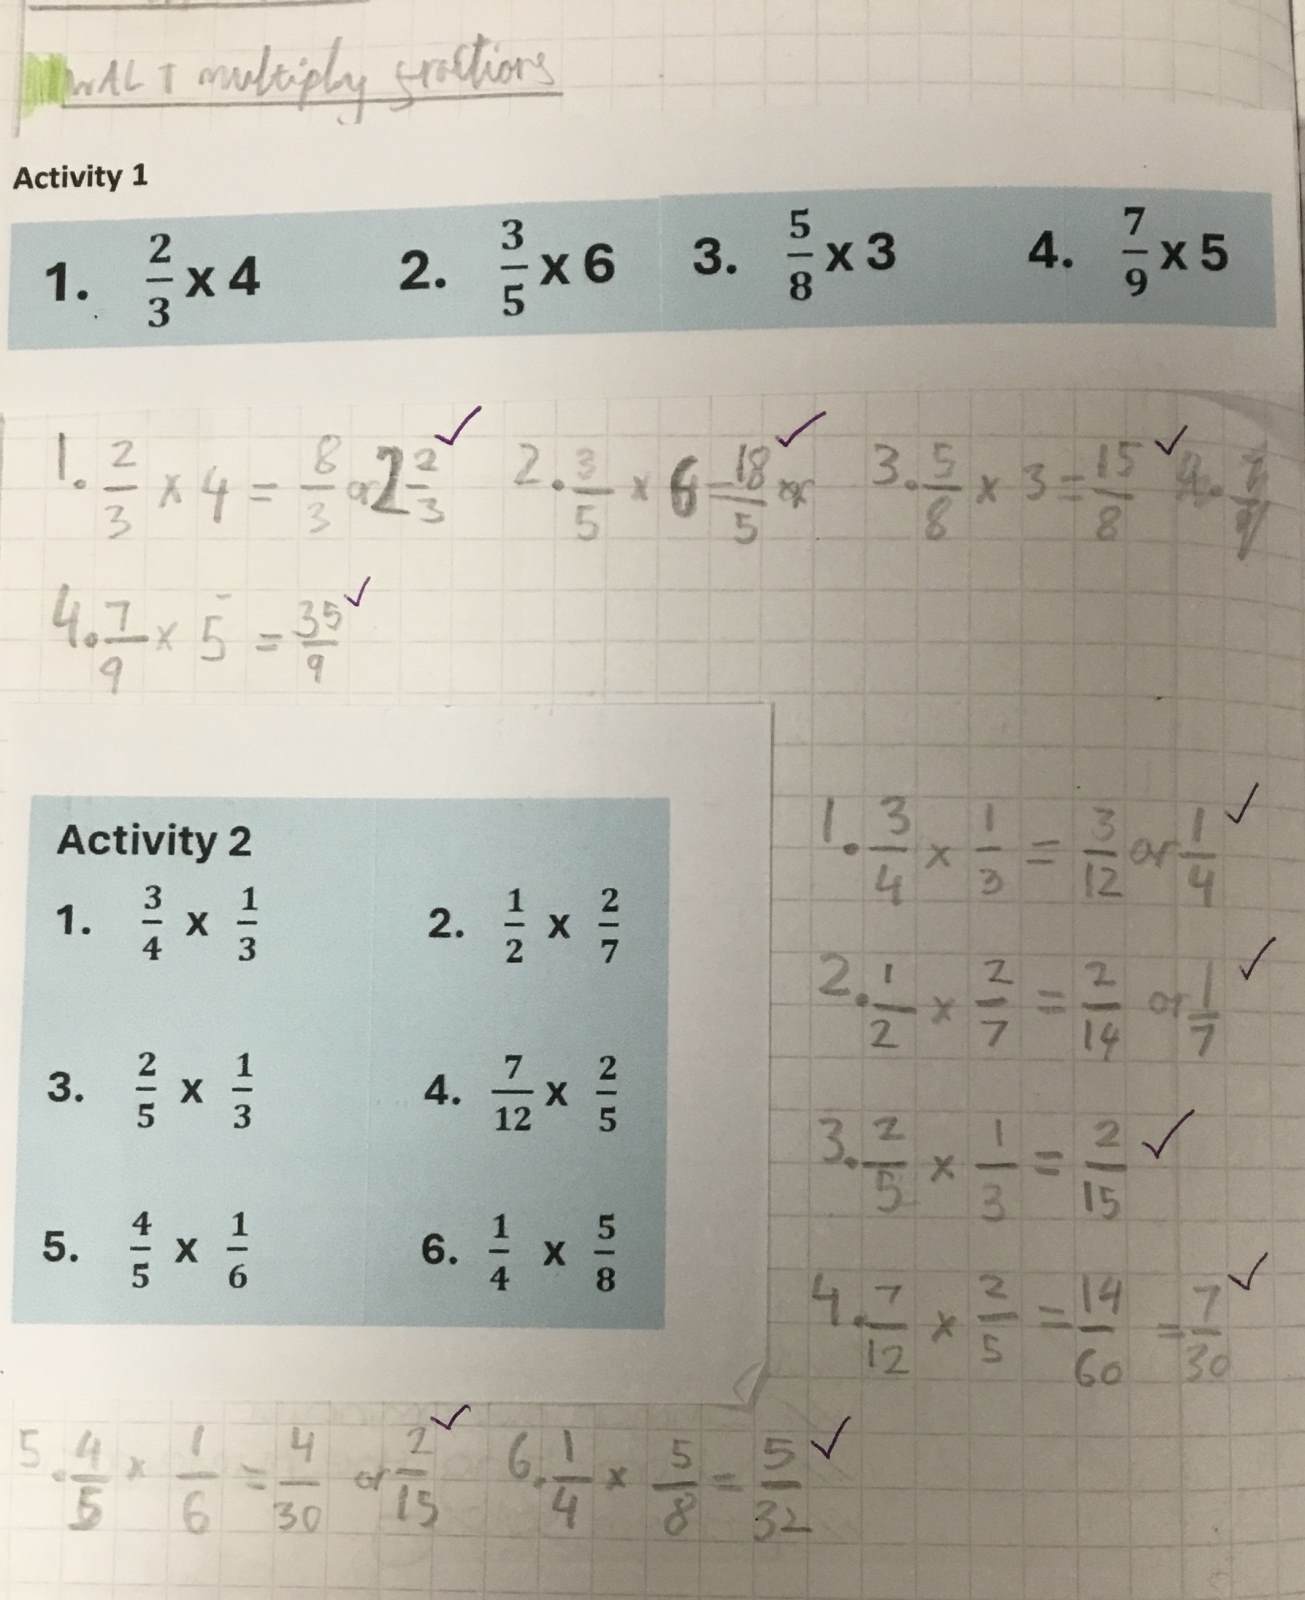 WALT multiply fractions
Activity 1
1. 2/3 x 4 2. 3/5 x 6 3. 5/8 x 3 4. 7/9 x 5
1. 2/3 × 4 = 8/3 or 2 2/3 ✓ 2. 3/5 × 6 = 18/5 ✓ 3. 5/8 × 3 = 15/8 ✓
4. 7/9 × 5 = 35/9 ✓
Activity 2
1. 3/4 x 1/3 2. 1/2 x 2/7
3. 2/5 x 1/3 4. 7/12 x 2/5
5. 4/5 x 1/6 6. 1/4 x 5/8
1. 3/4 × 1/3 = 3/12 or 1/4 ✓
2. 1/2 × 2/7 = 2/14 or 1/7 ✓
3. 2/5 × 1/3 = 2/15 ✓
4. 7/12 × 2/5 = 14/60 = 7/30 ✓
5. 4/5 × 1/6 = 4/30 or 2/15 ✓ 6. 1/4 × 5/8 = 5/32 ✓